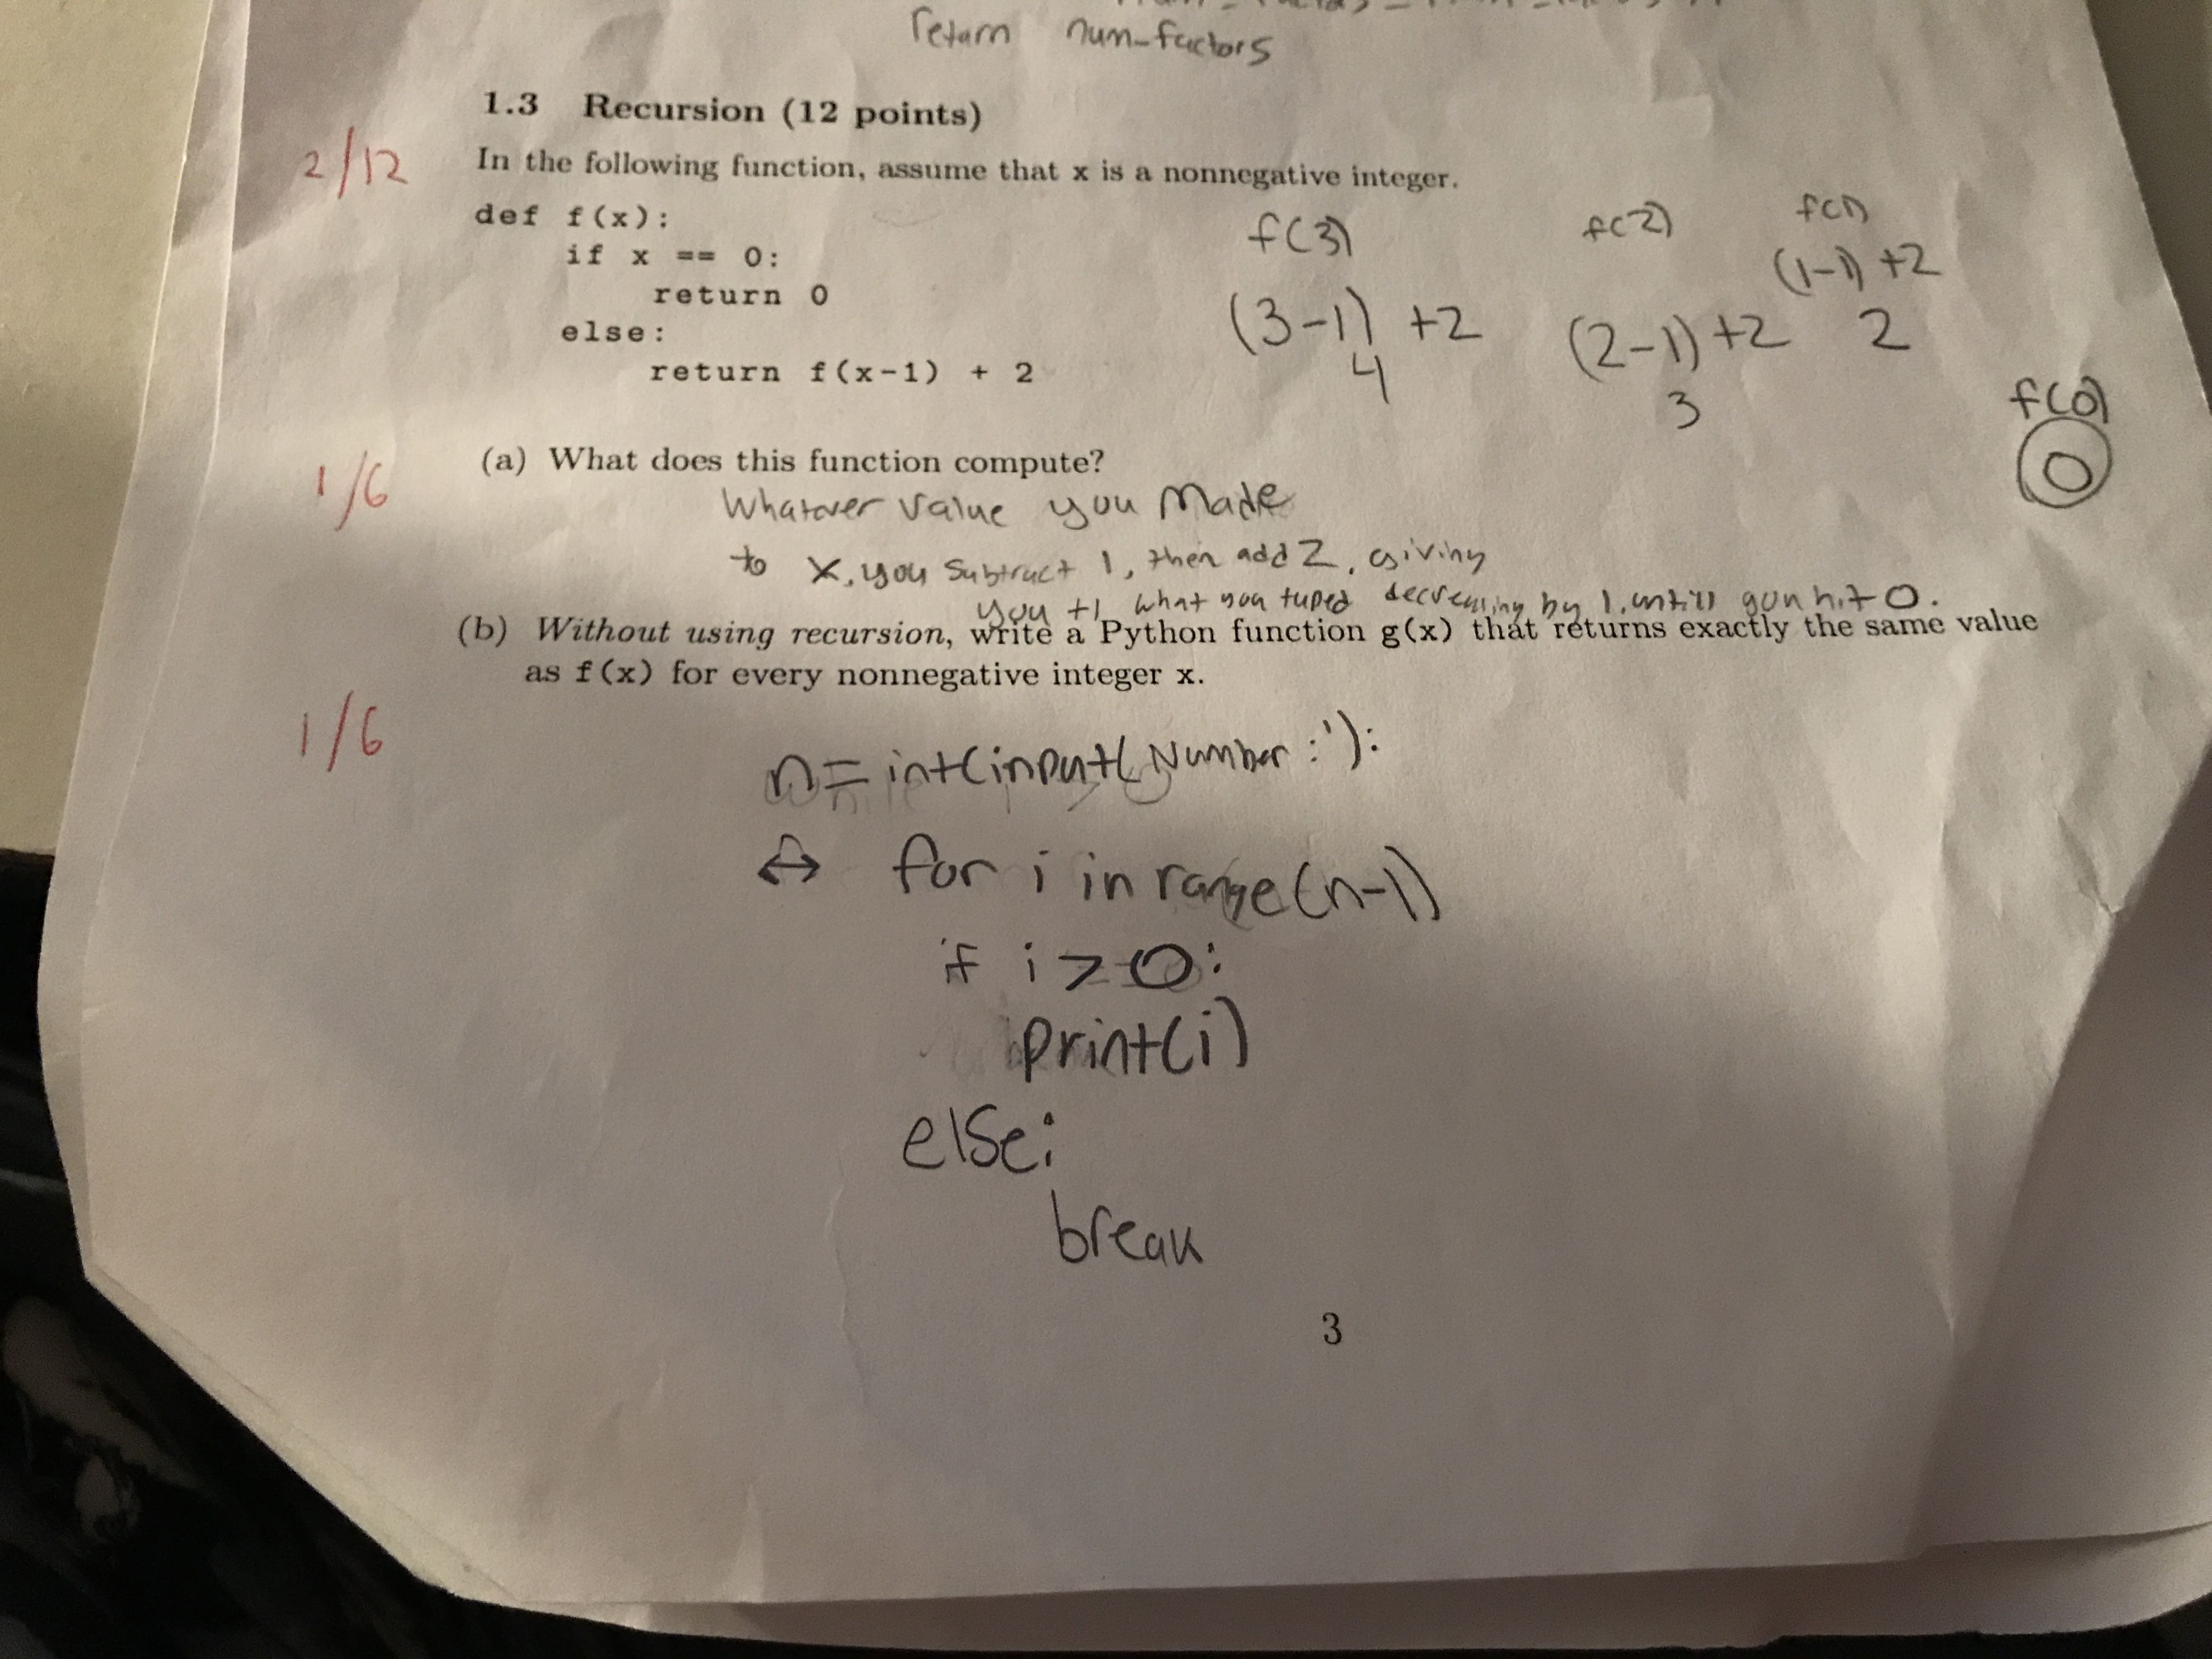 return num-factors
1.3 Recursion (12 points)
2/12
In the following function, assume that x is a nonnegative integer.
def f(x):
if x == 0:
return 0
else:
return f(x-1) + 2
f(3)
(3-1) +2
4
f(2)
(2-1) +2
3
f(1)
(1-1) +2
2
f(0)
0
1/6
(a) What does this function compute?
Whatever value you made
to x, you subtract 1, then add 2, giving
you +1 what you typed decreasing by 1, untill you hit 0.
(b) Without using recursion, write a Python function g(x) that returns exactly the same value
as f(x) for every nonnegative integer x.
1/6
n = int(input('Number :'):
for i in range(n-1)
if i > 0:
print(i)
else:
break
3